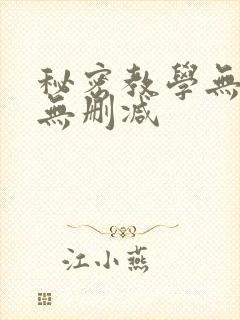 秘密教學無
無删减
江小燕